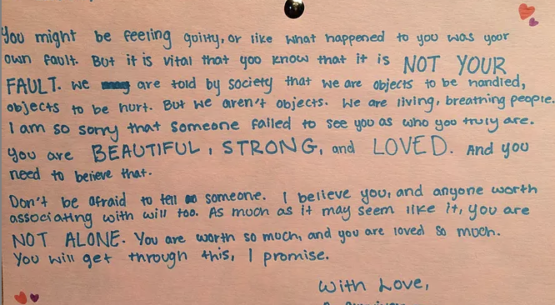 You might be feeling guilty, or like what happened to you was your
own fault. But it is vital that you know that it is NOT YOUR
FAULT. We are told by society that we are objects to be handled,
objects to be hurt. But we aren't objects. We are living, breathing people.
I am so sorry that someone failed to see you as who you truly are.
You are BEAUTIFUL, STRONG, and LOVED. And you
need to believe that.
Don't be afraid to tell someone. I believe you, and anyone worth
associating with will too. As much as it may seem like it, you are
NOT ALONE. You are worth so much, and you are loved so much.
You will get through this, I promise.
With Love,